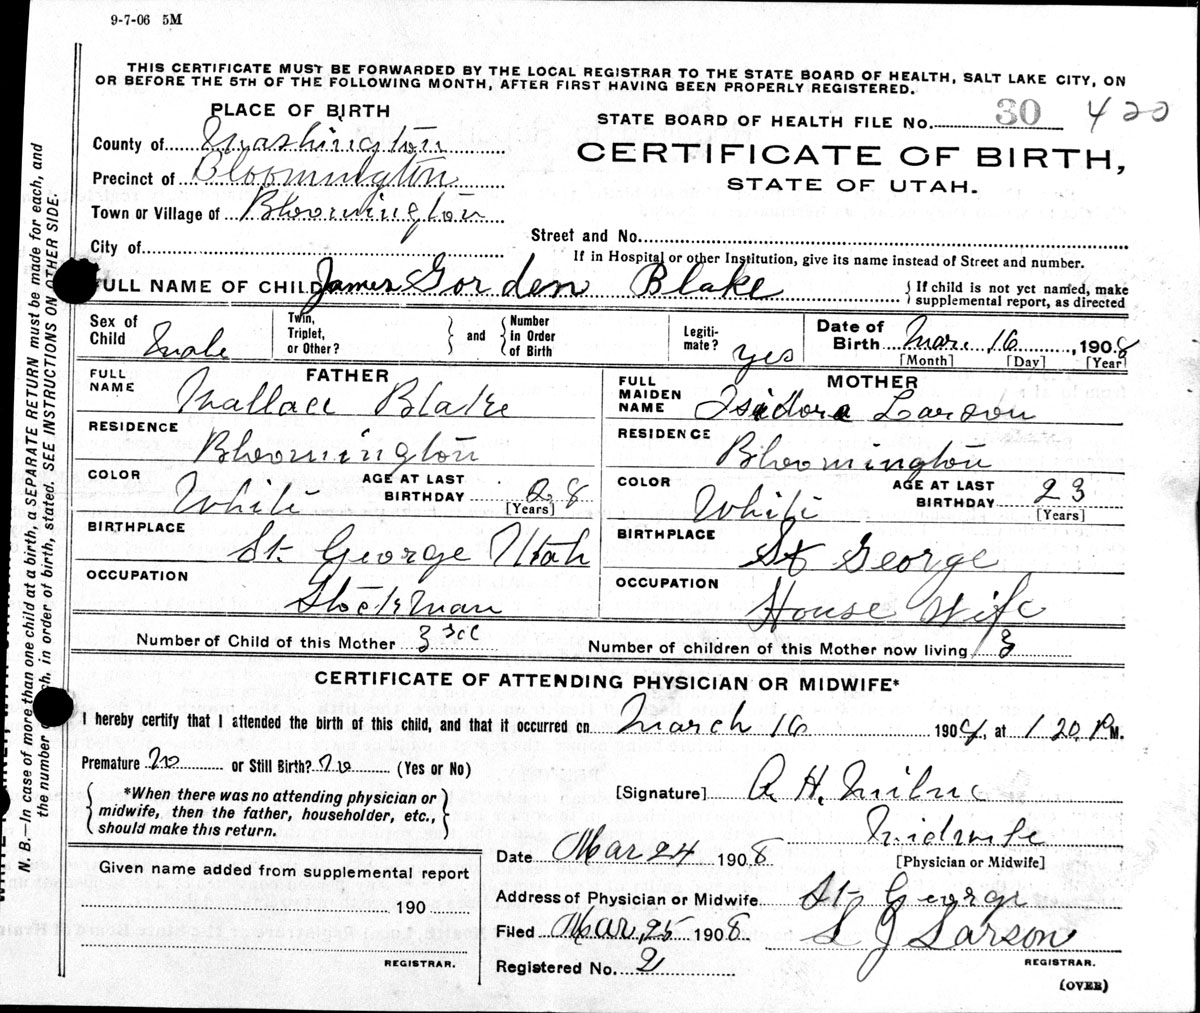 9-7-06 5M
THIS CERTIFICATE MUST BE FORWARDED BY THE LOCAL REGISTRAR TO THE STATE BOARD OF HEALTH, SALT LAKE CITY, ON
OR BEFORE THE 5TH OF THE FOLLOWING MONTH, AFTER FIRST HAVING BEEN PROPERLY REGISTERED.
PLACE OF BIRTH
STATE BOARD OF HEALTH FILE No. 30 420
County of Washington
CERTIFICATE OF BIRTH,
Precinct of Bloomington
STATE OF UTAH.
Town or Village of Bloomington
Street and No.
City of
If in Hospital or other Institution, give its name instead of Street and number.
FULL NAME OF CHILD James Gorden Blake { If child is not yet named, make supplemental report, as directed
Sex of Child Male Twin, Triplet, or Other? } and { Number in Order of Birth Legiti-mate? yes Date of Birth Mar. 16, 1908
[Month] [Day] [Year]
FATHER
MOTHER
FULL NAME Wallace Blake
FULL MAIDEN NAME Isidora Larson
RESIDENCE Bloomington
RESIDENCE Bloomington
COLOR White AGE AT LAST BIRTHDAY 28 [Years]
COLOR White AGE AT LAST BIRTHDAY 23 [Years]
BIRTHPLACE St. George Utah
BIRTHPLACE St George
OCCUPATION Stockman
OCCUPATION House Wife
Number of Child of this Mother 3
Number of children of this Mother now living 3
CERTIFICATE OF ATTENDING PHYSICIAN OR MIDWIFE*
I hereby certify that I attended the birth of this child, and that it occurred on March 16 1908, at 1 20 P M.
Premature No or Still Birth? No (Yes or No)
{ *When there was no attending physician or
midwife, then the father, householder, etc.,
should make this return. }
[Signature] A. H. Milne
Midwife
Date Mar 24 1908 [Physician or Midwife]
Given name added from supplemental report
190
REGISTRAR.
Address of Physician or Midwife St. George
Filed Mar. 25 1908 L J Larson
REGISTRAR.
Registered No. 2
(OVER)
N. B.—In case of more than one child at a birth, a SEPARATE RETURN must be made for each, and
the number of each, in order of birth, stated. SEE INSTRUCTIONS ON OTHER SIDE.